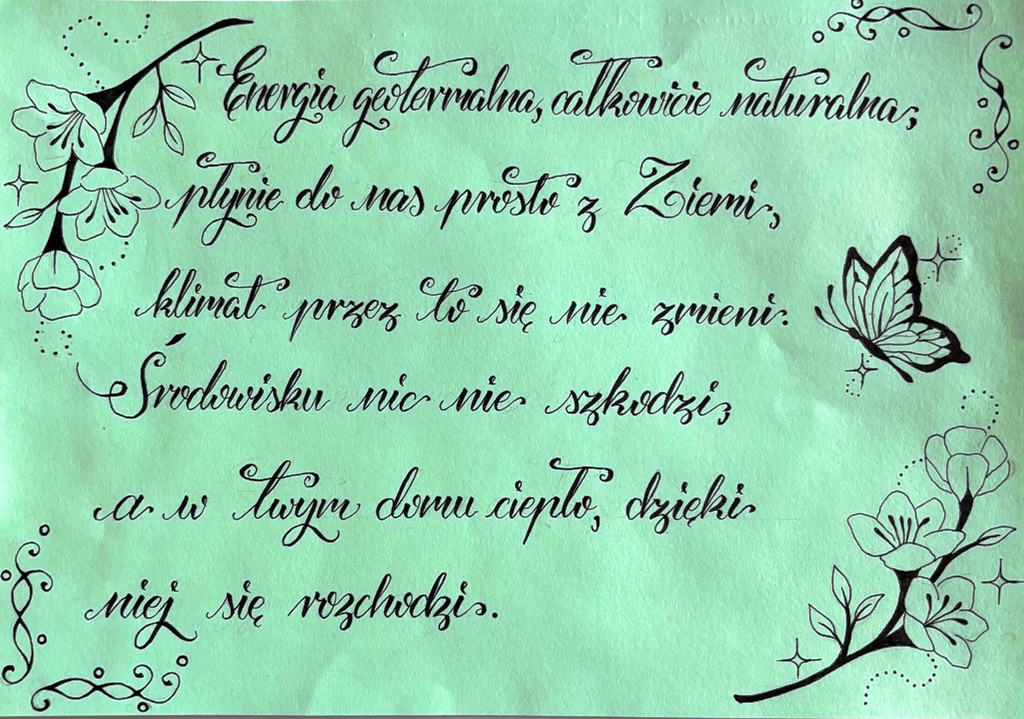 Energia geotermalna, całkowicie naturalna,
płynie do nas prosto z Ziemi,
klimat przez to się nie zmieni.
Środowisku nic nie szkodzi,
a w twym domu ciepło, dzięki
niej się rozchodzi.